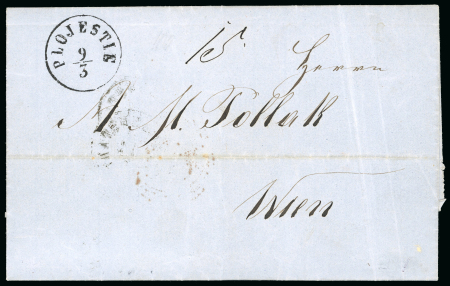 PLOJESTIE
9/3
15.
Herrn
M. H. Pollak
Wien